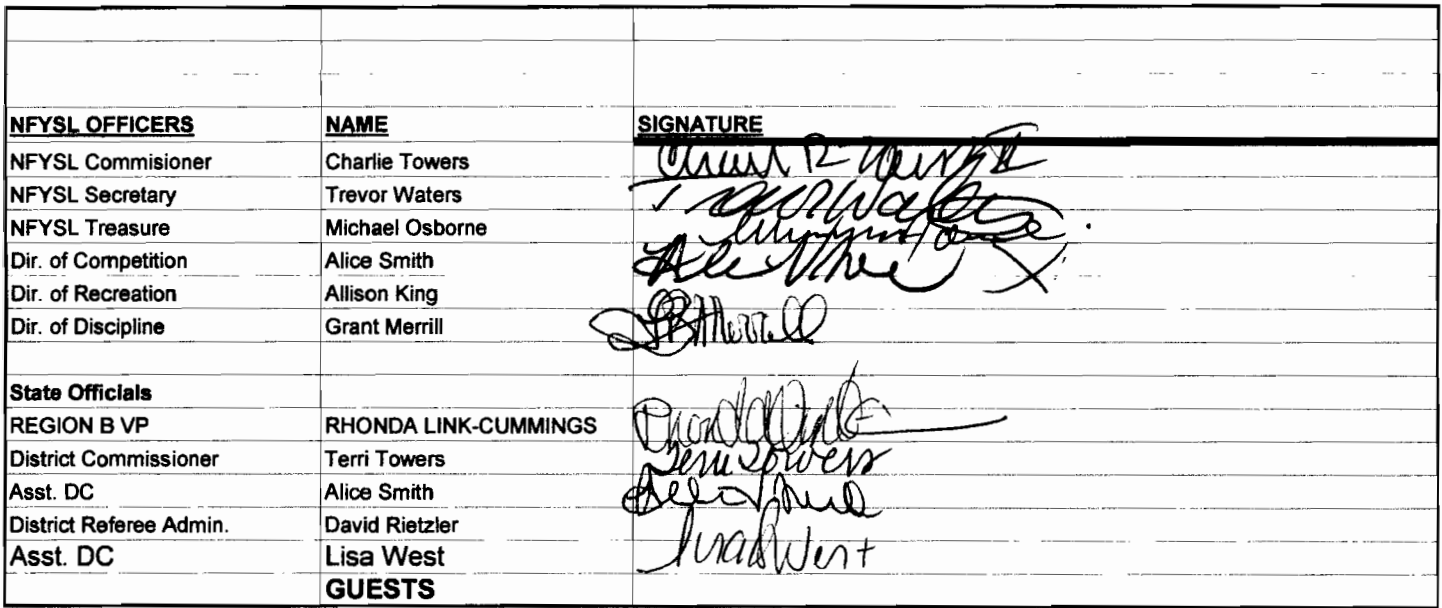 NFYSL OFFICERS NAME SIGNATURE
NFYSL Commisioner Charlie Towers
NFYSL Secretary Trevor Waters
NFYSL Treasure Michael Osborne
Dir. of Competition Alice Smith
Dir. of Recreation Allison King
Dir. of Discipline Grant Merrill Merrell
State Officials
REGION B VP RHONDA LINK-CUMMINGS Rhonda
District Commissioner Terri Towers Terri Towers
Asst. DC Alice Smith
District Referee Admin. David Rietzler
Asst. DC Lisa West Lisa West
GUESTS